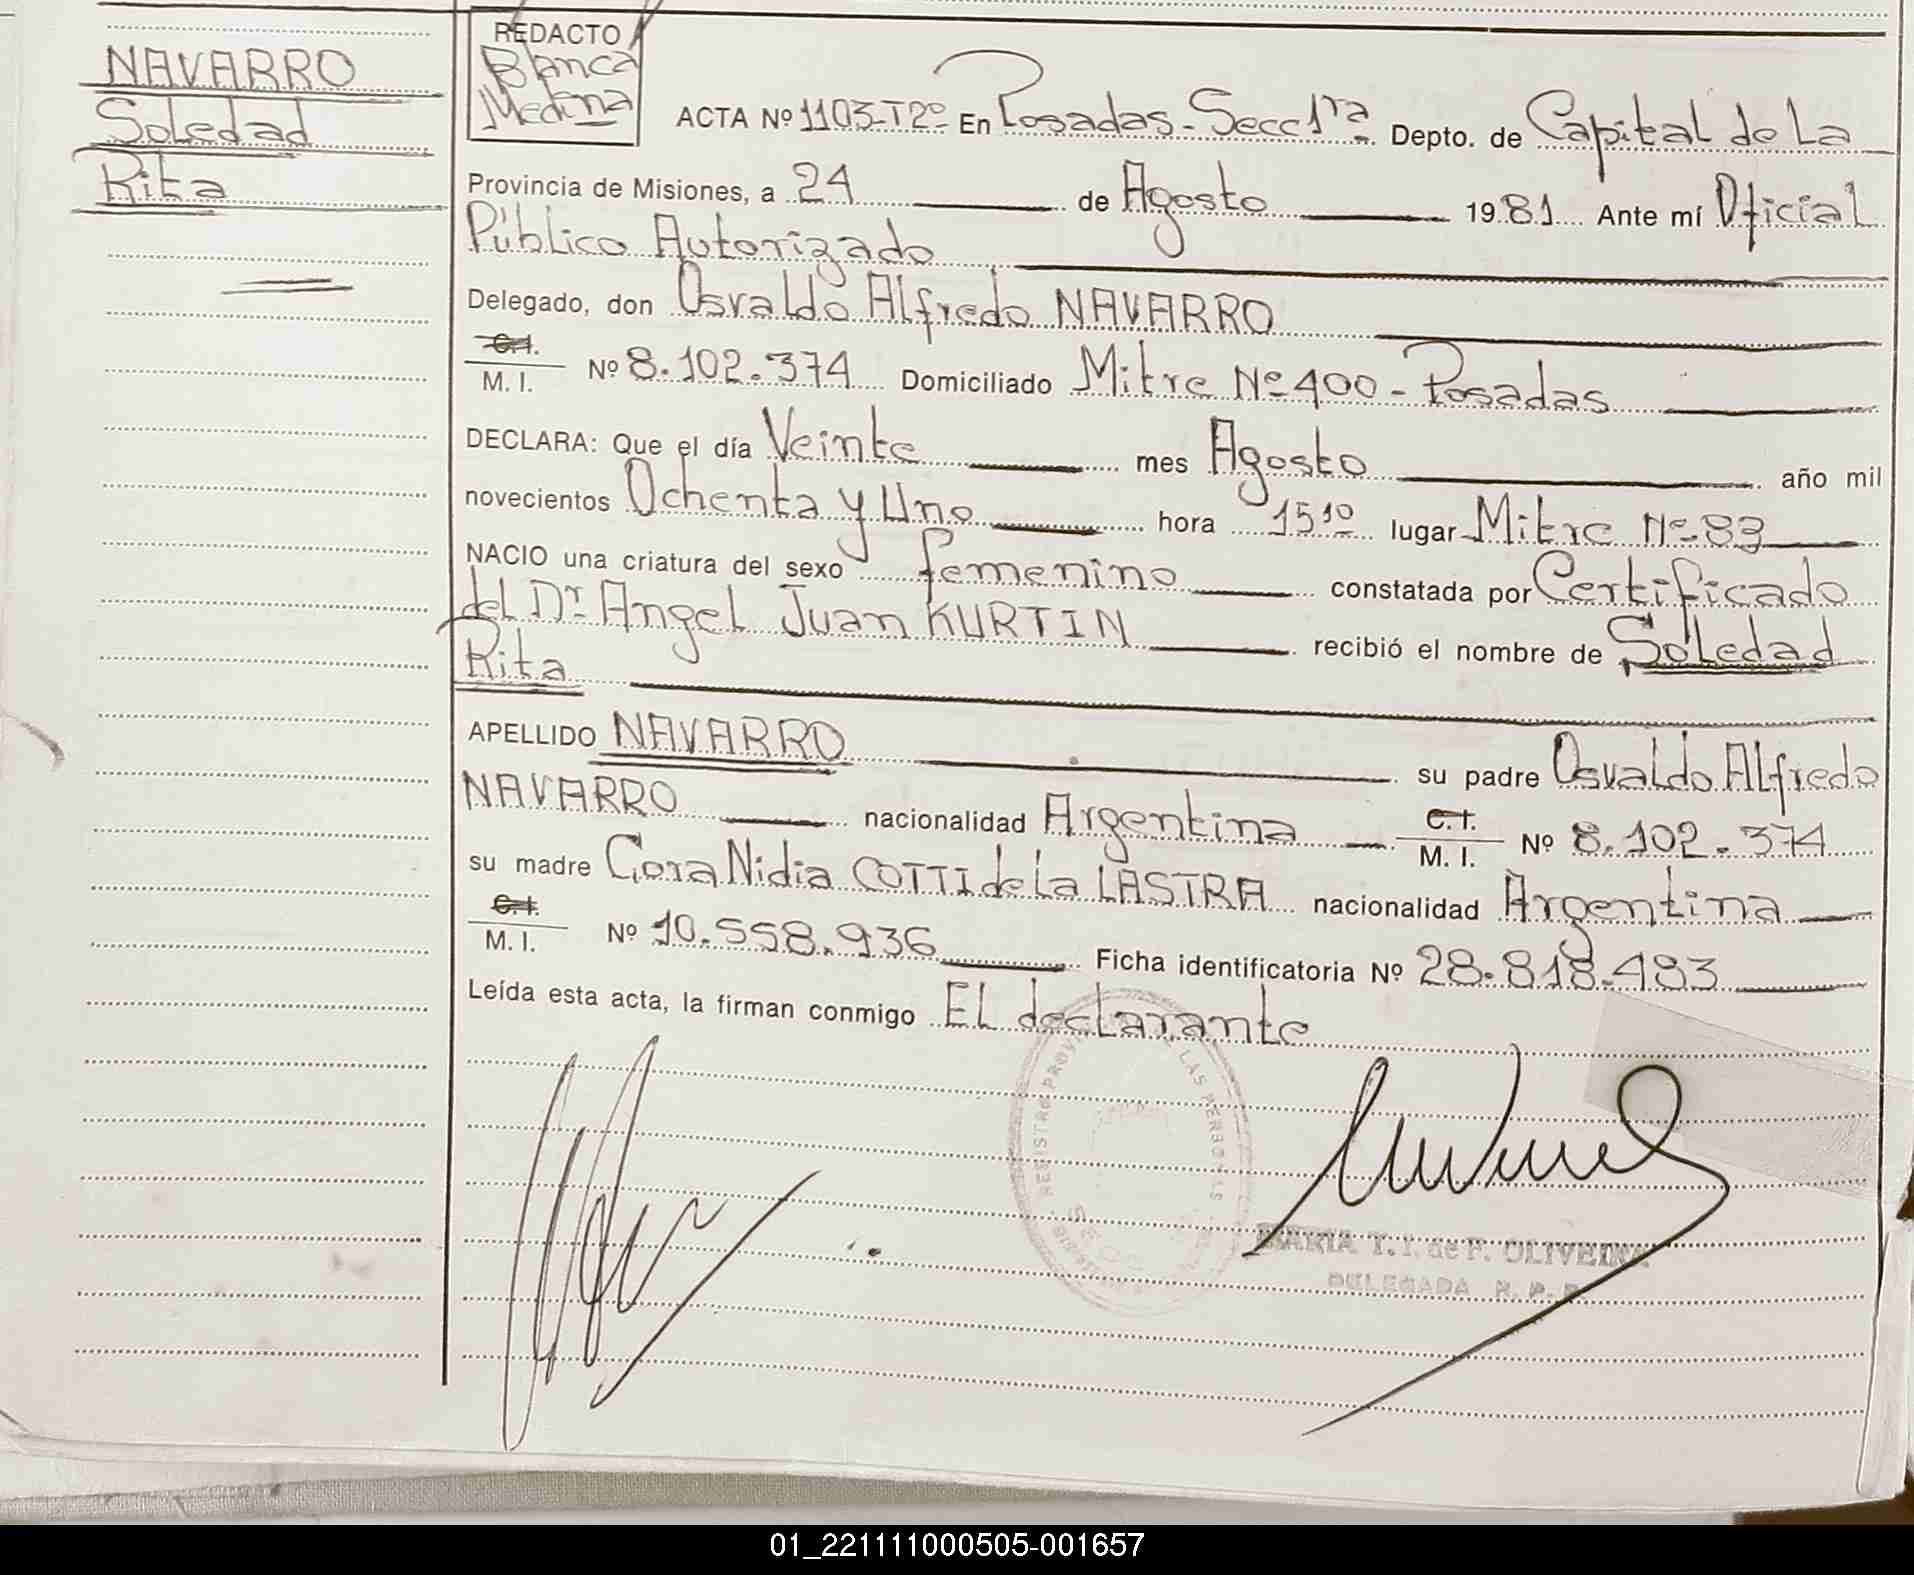 NAVARRO
Soledad
Rita
REDACTO
Blanca
Medina
ACTA Nº 1103-T2º En Posadas-Secc 1ra Depto. de Capital de La
Provincia de Misiones, a 24 de Agosto 1981 Ante mí Oficial
Público Autorizado
Delegado, don Osvaldo Alfredo NAVARRO
C.I.
M. I. Nº 8.102.374 Domiciliado Mitre Nº 400 - Posadas
DECLARA: Que el día Veinte mes Agosto año mil
novecientos Ochenta y Uno hora 15 10 lugar Mitre Nº 83
NACIO una criatura del sexo femenino constatada por Certificado
del Dr. Angel Juan KURTIN recibió el nombre de Soledad
Rita
APELLIDO NAVARRO su padre Osvaldo Alfredo
NAVARRO nacionalidad Argentina C.I. M. I. Nº 8.102.374
su madre Cora Nidia COTTI de La LASTRA nacionalidad Argentina
C.I.
M. I. Nº 10.558.936 Ficha identificatoria Nº 28.818.483
Leída esta acta, la firman conmigo El declarante
REGISTRO PROV LAS PERSONAS
MARIA T. I. de F. OLIVEIRA
DELEGADA R. P. P.
01_221111000505-001657